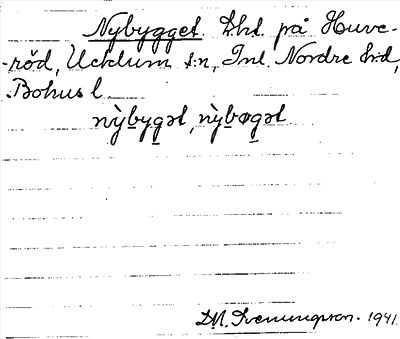 Nybygget. Lht. på Huve-
-röd, Ucklum s:n, Inl. Nordre hd,
Bohusl
nỳbygət, nỳbøgət
D.M. Svenungsson. 1941.